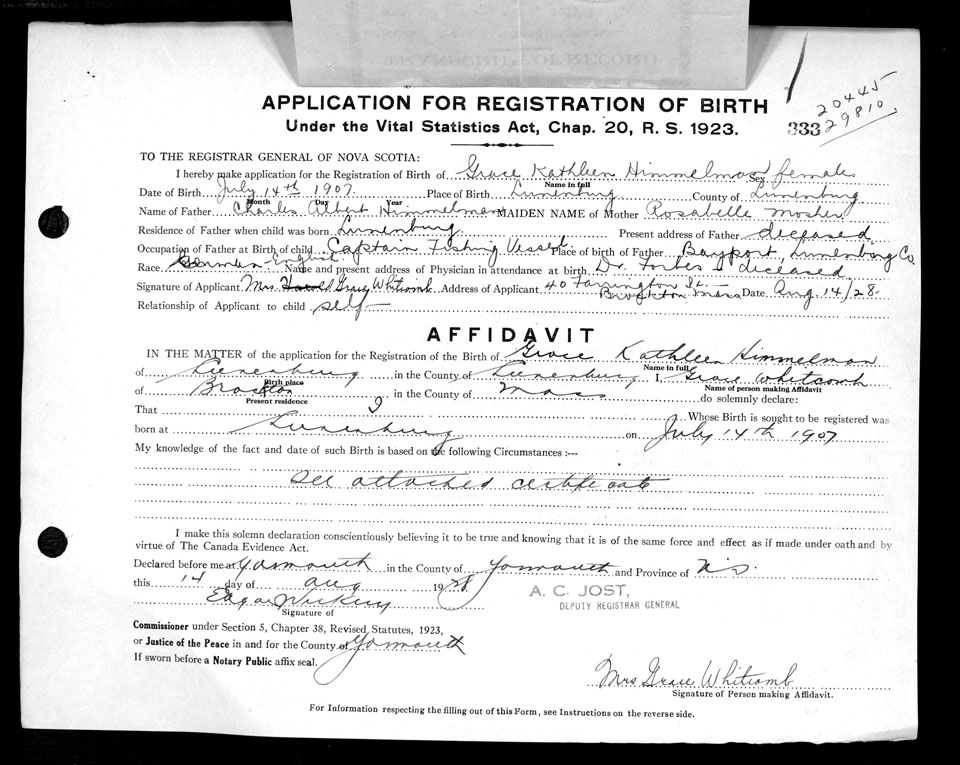 APPLICATION FOR REGISTRATION OF BIRTH
Under the Vital Statistics Act, Chap. 20, R. S. 1923.
333
20445
29810
TO THE REGISTRAR GENERAL OF NOVA SCOTIA:
I hereby make application for the Registration of Birth of Grace Kathleen Himmelman Sex females
Name in full
Date of Birth July 14th 1907. Place of Birth Lunenburg County of Lunenburg
Month Day Year
Name of Father Charles Albert Himmelman MAIDEN NAME of Mother Rosabelle Mosher
Residence of Father when child was born Lunenburg. Present address of Father deceased
Occupation of Father at Birth of child Captain Fishing Vessel. Place of birth of Father Bayport, Lunenburg Co.
Race German English Name and present address of Physician in attendance at birth Dr. Forbes - deceased
Signature of Applicant Mrs. Grace Whitcomb Address of Applicant 40 Farrington St. Brockton Mass Date Aug. 14/28.
Relationship of Applicant to child self
AFFIDAVIT
IN THE MATTER of the application for the Registration of the Birth of Grace Kathleen Himmelman
Name in full
of Lunenburg in the County of Lunenburg I, Grace Whitcomb
Birth place Name of person making Affidavit
of Brockton in the County of Mass do solemnly declare:
Present residence
That I Whose Birth is sought to be registered was
born at Lunenburg on July 14th 1907
My knowledge of the fact and date of such Birth is based on the following Circumstances :---
See attached certificate
I make this solemn declaration conscientiously believing it to be true and knowing that it is of the same force and effect as if made under oath and by
virtue of The Canada Evidence Act.
Declared before me at Yarmouth in the County of Yarmouth and Province of N.S.
this 14 day of Aug 1928
A. C. JOST,
DEPUTY REGISTRAR GENERAL
Edgar
Signature of
Commissioner under Section 5, Chapter 38, Revised Statutes, 1923,
or Justice of the Peace in and for the County of Yarmouth
If sworn before a Notary Public affix seal.
Mrs Grace Whitcomb
Signature of Person making Affidavit.
For Information respecting the filling out of this Form, see Instructions on the reverse side.